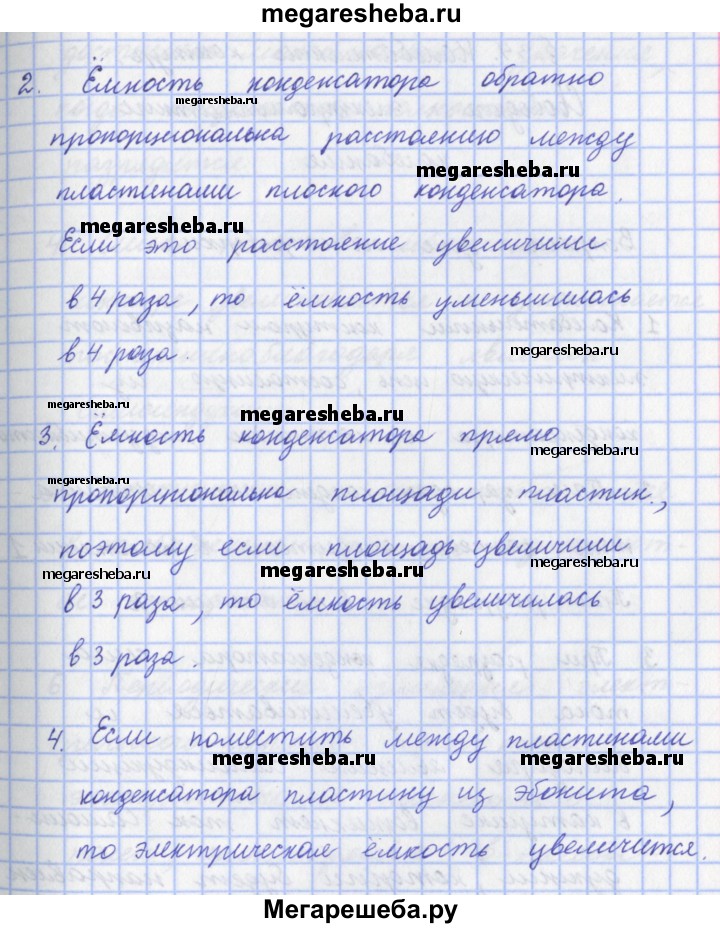 megaresheba.ru
2. Ёмность конденсатора обратно
megaresheba.ru
пропорциональна расстоянию между
megaresheba.ru
пластинами плоского конденсатора.
megaresheba.ru
Если это расстояние увеличили
в 4 раза, то ёмкость уменьшилась
в 4 раза.
megaresheba.ru
megaresheba.ru
megaresheba.ru
3. Ёмность конденсатора прямо
megaresheba.ru
megaresheba.ru
пропорциональна площади пластин,
поэтому если площадь увеличили
megaresheba.ru
megaresheba.ru
megaresheba.ru
в 3 раза, то ёмкость увеличилась
в 3 раза.
4. Если поместить между пластинами
megaresheba.ru
megaresheba.ru
конденсатора пластину из эбонита,
то электрическая ёмкость увеличится.
Мегарешеба.ру